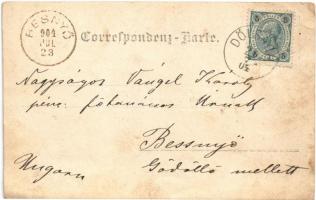 BESNYŐ
904
JUL.
23
Correspondenz-Karte.
DÖ
Nagyságos Vangel Károly
pénz. főtanácsos Úrnak
Bessnyő
Ungarn Gödöllő mellett